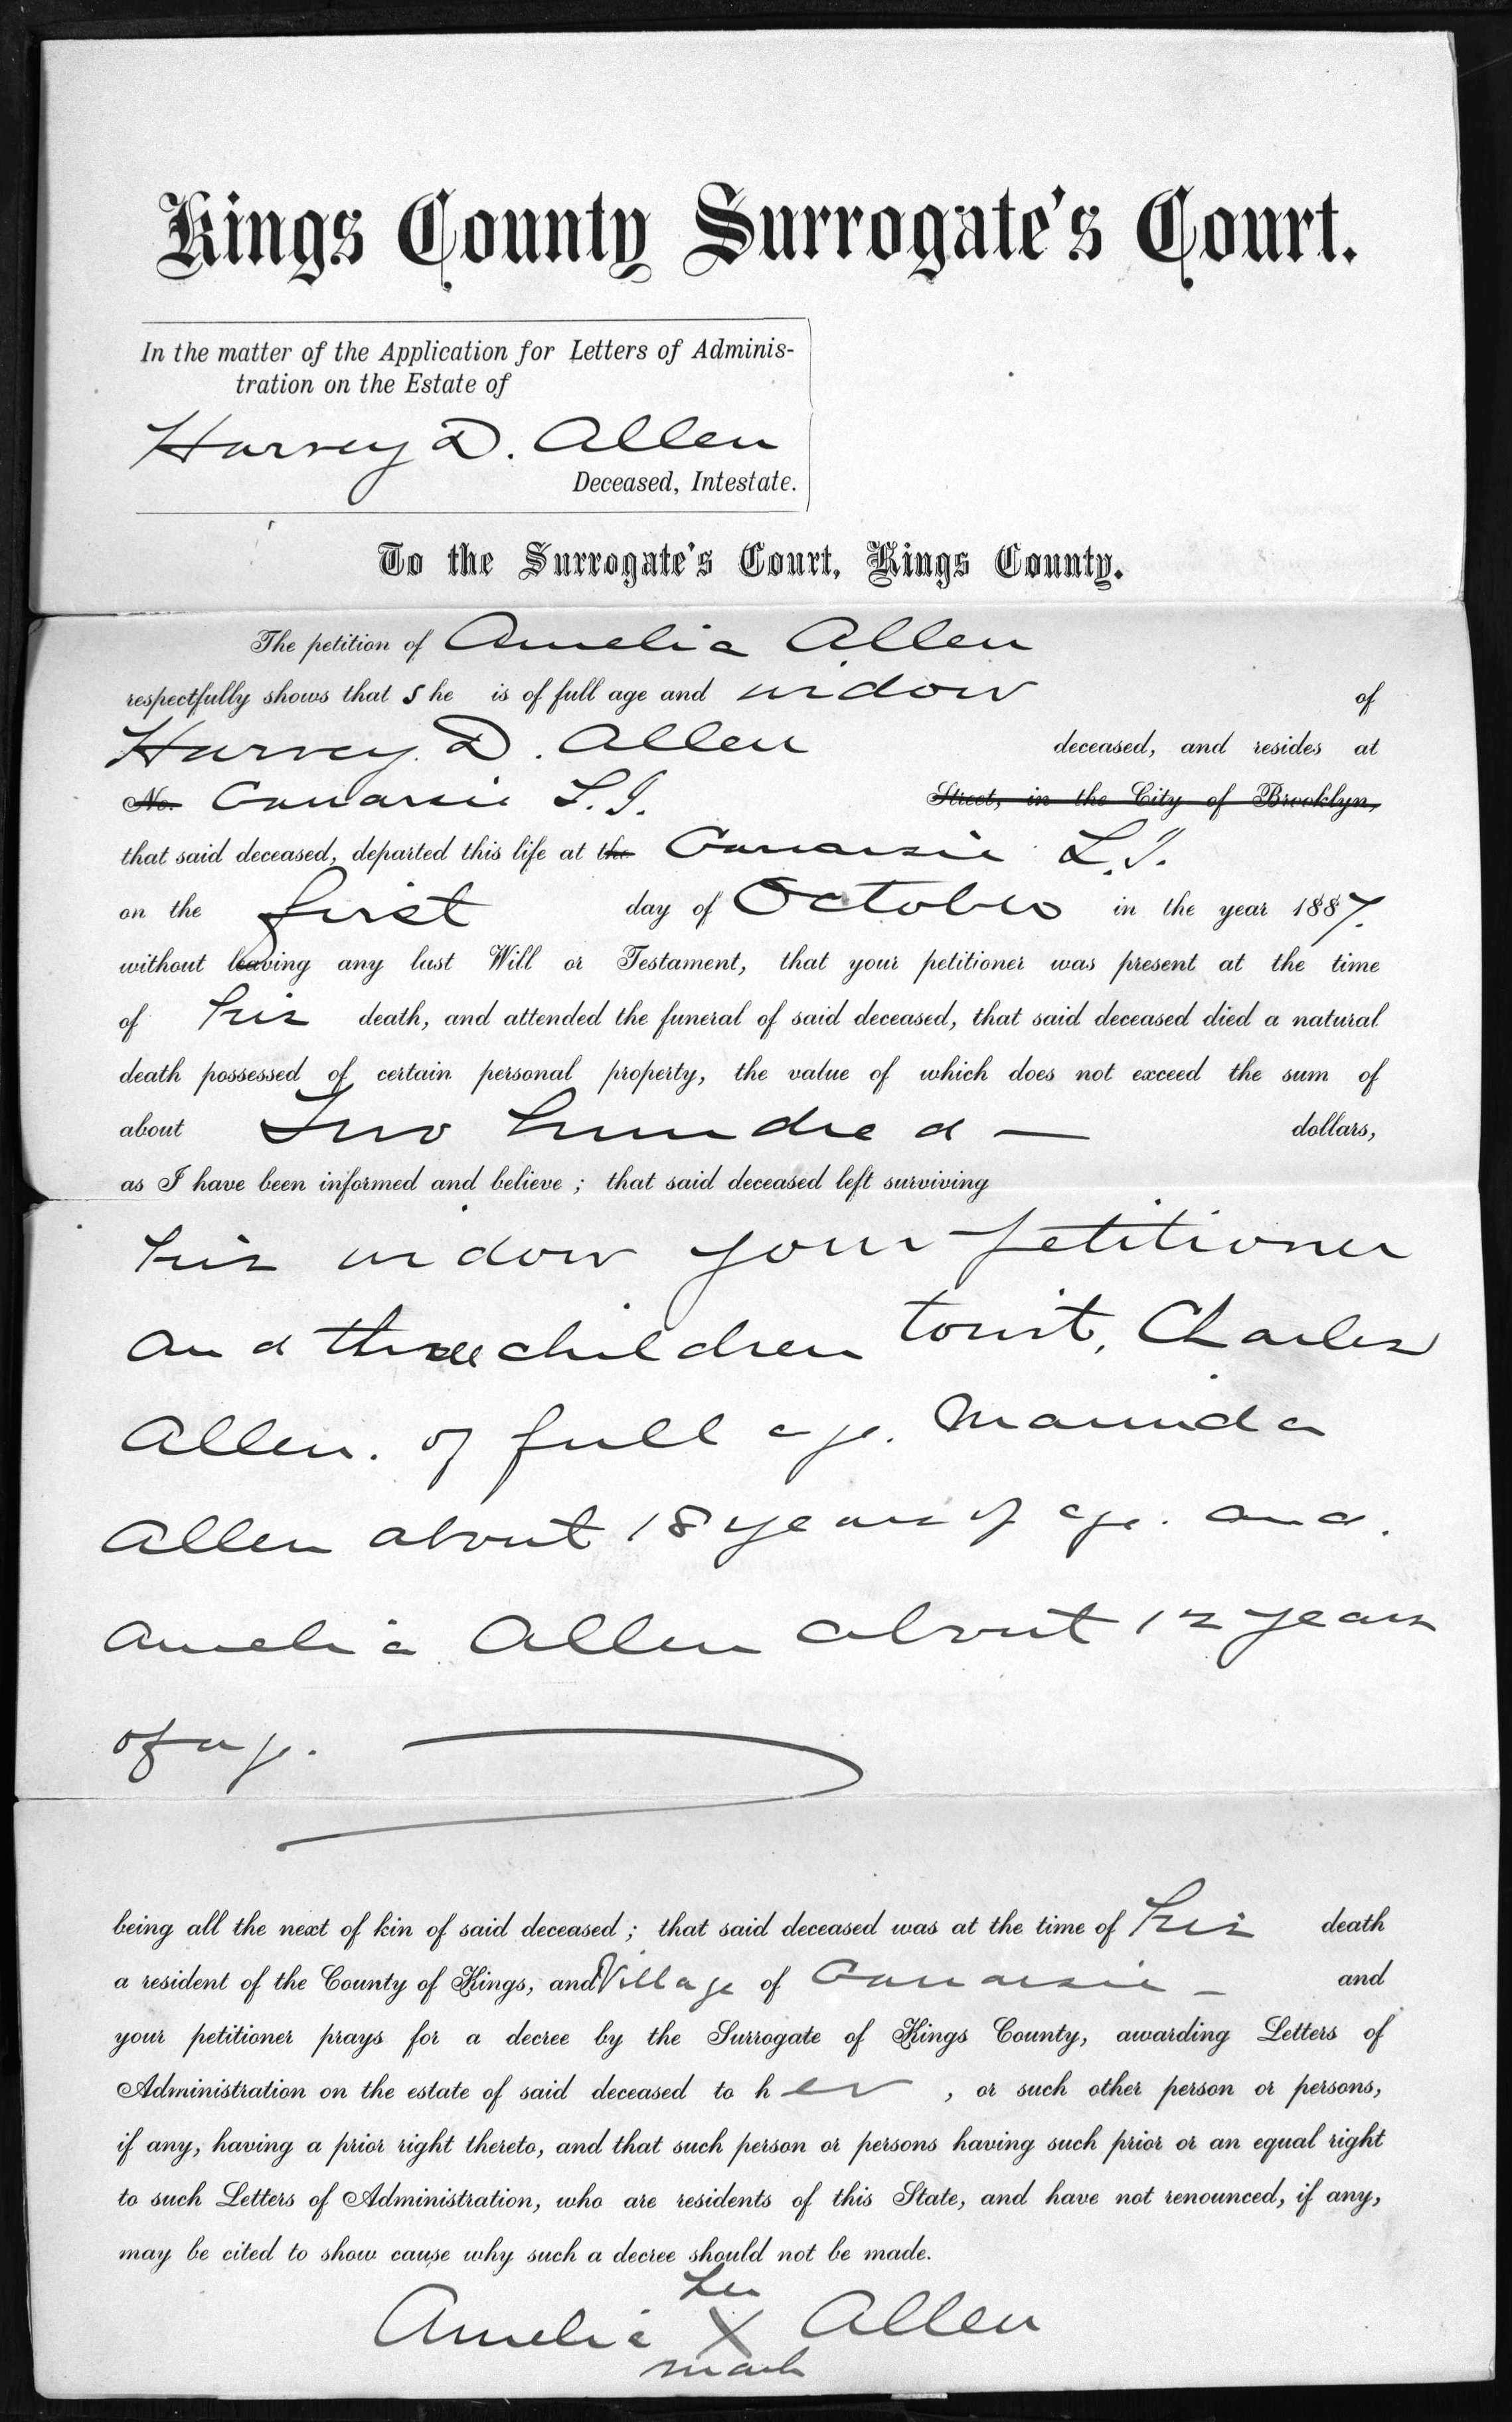 Kings County Surrogate's Court.
In the matter of the Application for Letters of Adminis-
tration on the Estate of
Harvey D. Allen
Deceased, Intestate.
To the Surrogate's Court, Kings County.
The petition of Amelia Allen
respectfully shows that she is of full age and widow of
Harvey D. Allen deceased, and resides at
No. Canarsie L.I. Street, in the City of Brooklyn,
that said deceased, departed this life at the Canarsie L.I.
on the first day of October in the year 1887.
without leaving any last Will or Testament, that your petitioner was present at the time
of his death, and attended the funeral of said deceased, that said deceased died a natural
death possessed of certain personal property, the value of which does not exceed the sum of
about Two hundred — dollars,
as I have been informed and believe; that said deceased left surviving
his widow your petitioner
and three children towit, Charles
Allen. of full age.
Allen about 18 years of age. and.
Amelia Allen about 12 years
of age.
being all the next of kin of said deceased; that said deceased was at the time of his death
a resident of the County of Kings, and Village of Canarsie - and
your petitioner prays for a decree by the Surrogate of Kings County, awarding Letters of
Administration on the estate of said deceased to her, or such other person or persons,
if any, having a prior right thereto, and that such person or persons having such prior or an equal right
to such Letters of Administration, who are residents of this State, and have not renounced, if any,
may be cited to show cause why such a decree should not be made.
her
Amelia X Allen
mark